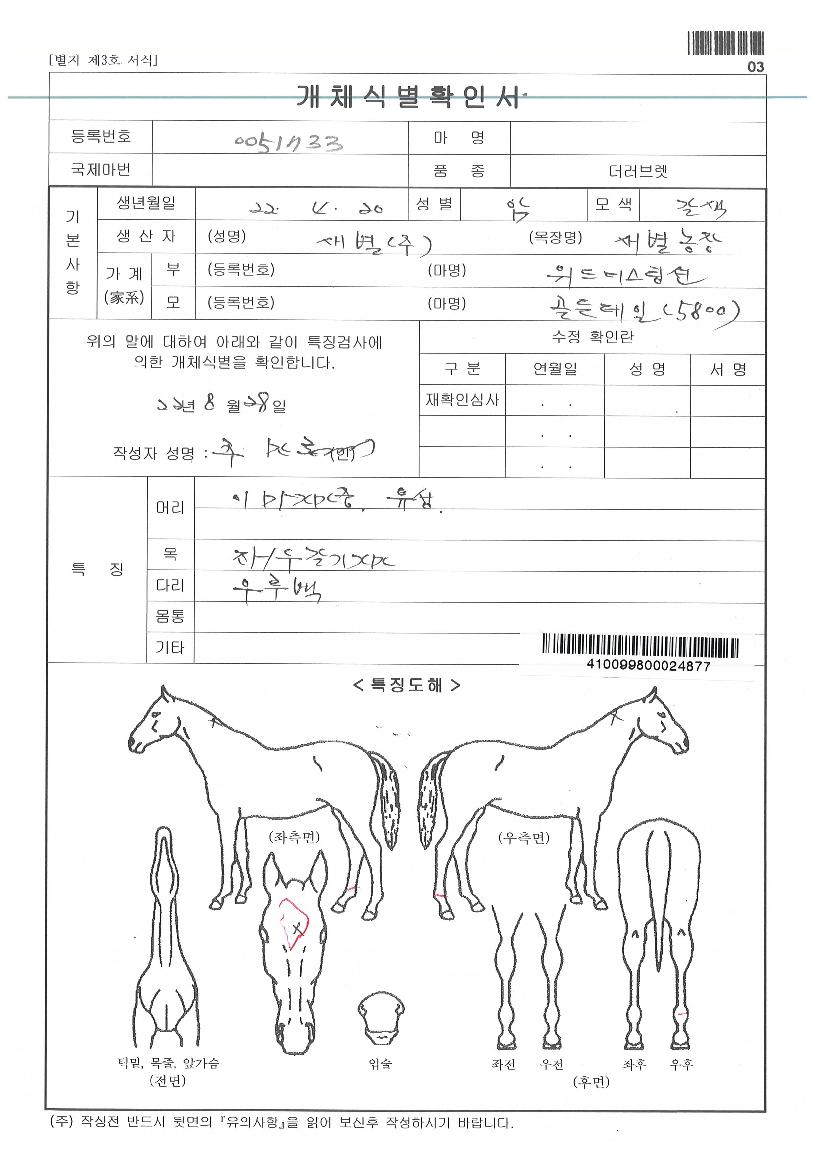 [별지 제3호 서식]
03
개체식별확인서
등록번호 0051733 마 명
국제마번 품 종 더러브렛
기본사항
생년월일 22. 4. 20 성 별 암 모 색 갈색
생 산 자 (성명) 새별(주) (목장명) 새별농장
가 계 (家系) 부 (등록번호) (마명) 위드디스팅션
모 (등록번호) (마명) 골든데일(5800)
위의 말에 대하여 아래와 같이 특징검사에
의한 개체식별을 확인합니다.
수정 확인란
구 분 연월일 성 명 서 명
재확인심사 . .
. .
. .
22년 8 월 28일
작성자 성명 : (인)
특 징
머리 이마자마중, 유성.
목 좌/우줄기자마
다리 우후백
몸통
기타
410099800024877
< 특징도해 >
(좌측면) (우측면)
턱밑, 목줄, 앞가슴
(전면)
입술
좌전 우전 좌후 우후
(후면)
(주) 작성전 반드시 뒷면의 『유의사항』을 읽어 보신후 작성하시기 바랍니다.